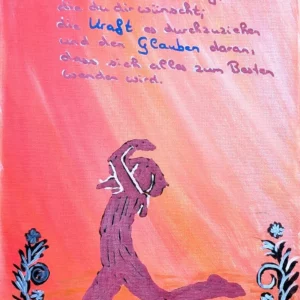 die du dir wünscht;
die Kraft es durchzuziehen
und den Glauben daran,
dass sich alles zum Besten
wenden wird.